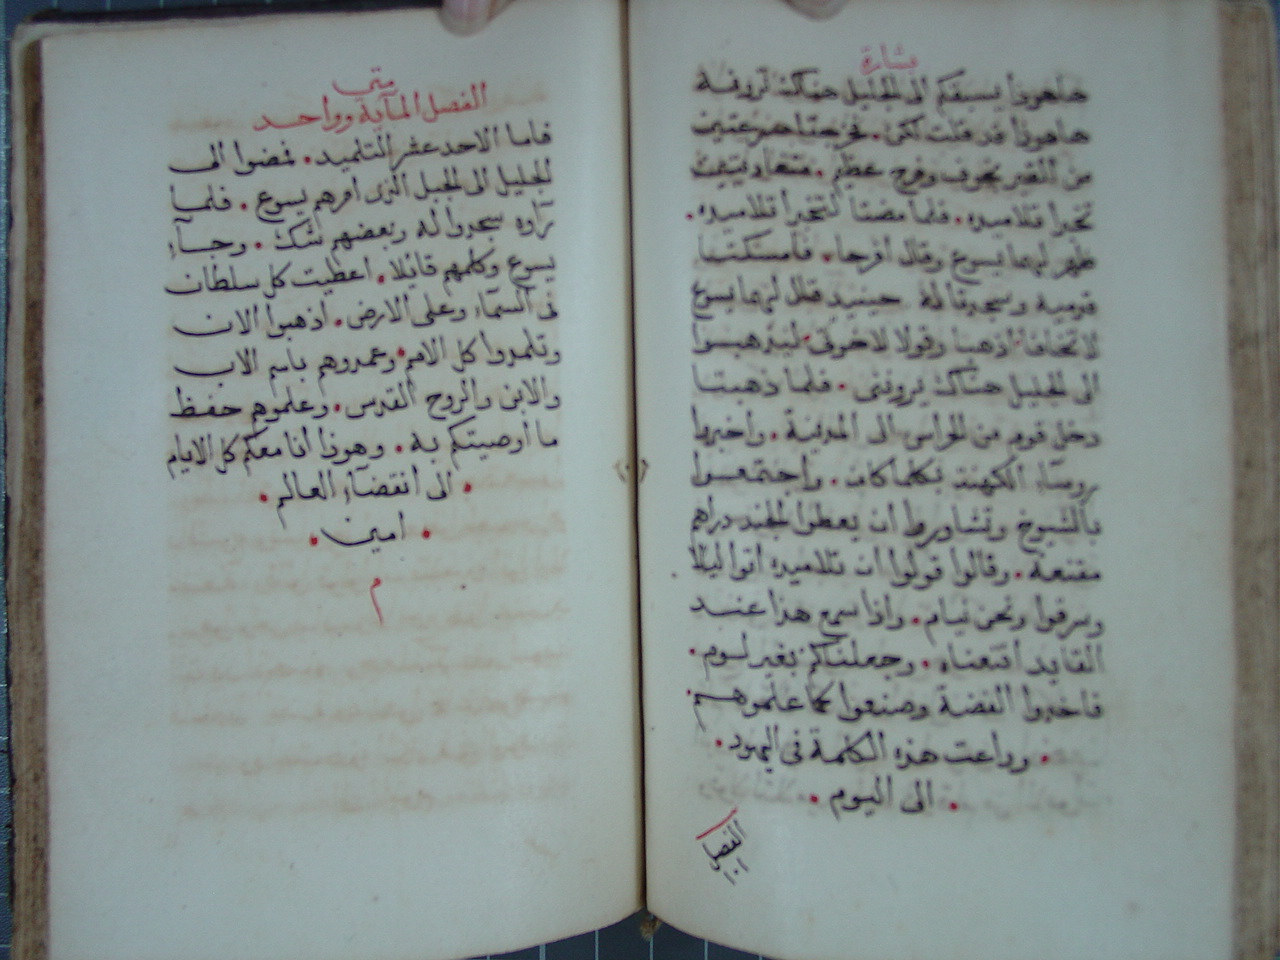 بشارة
هاهوذا يسبقكم الى الجليل هناك ترونه
هاهوذا قد قلت لكن. فخرجتا مسرعتين
من القبر بخوف وفرح عظيم.
تخبرا تلاميذه. فلما مضتا لتخبرا تلاميذه.
ظهر لهما يسوع وقال افرحا. فامسكتا
قدميه وسجدتا له حينيذ قال لهما يسوع
لا تخافا اذهبا وقولا لاخوتى. ليذهبوا
الى الجليل هناك يرونى. فلما ذهبتا
دخل قوم من الحراس الى المدينة. واخبروا
روساء الكهنة بكلما كان. واجتمعوا
بالشيوخ وتشاوروا ان يعطوا الجند دراهم
مقنعة. وقالوا قولوا ان تلاميذه اتوا ليلا
وسرقوا ونحن نيام. واذا سمع هذا عند
القايد اقنعناه. وجعلناكم بغير لوم.
فاخذوا الفضة وصنعوا كما علموهم.
. وذاعت هذه الكلمة فى اليهود.
. الى اليوم.
الفصل
١٠١
متى
الفصل المآية وواحد
فاما الاحد عشر التلميد. فمضوا الى
الجليل الى الجبل الذى امرهم يسوع. فلما
رآوه سجدوا له وبعضهم شك. وجآء
يسوع وكلمهم قايلا. اعطيت كل سلطان
فى السمآء وعلى الارض. اذهبوا الان
وتلمدوا كل الامم. وعمدوهم باسم الاب
والابن والروح القدس. وعلموهم حفظ
ما اوصيتكم به. وهوذا انا معكم كل الايام
. الى انقضآء العالم.
. امين.
م